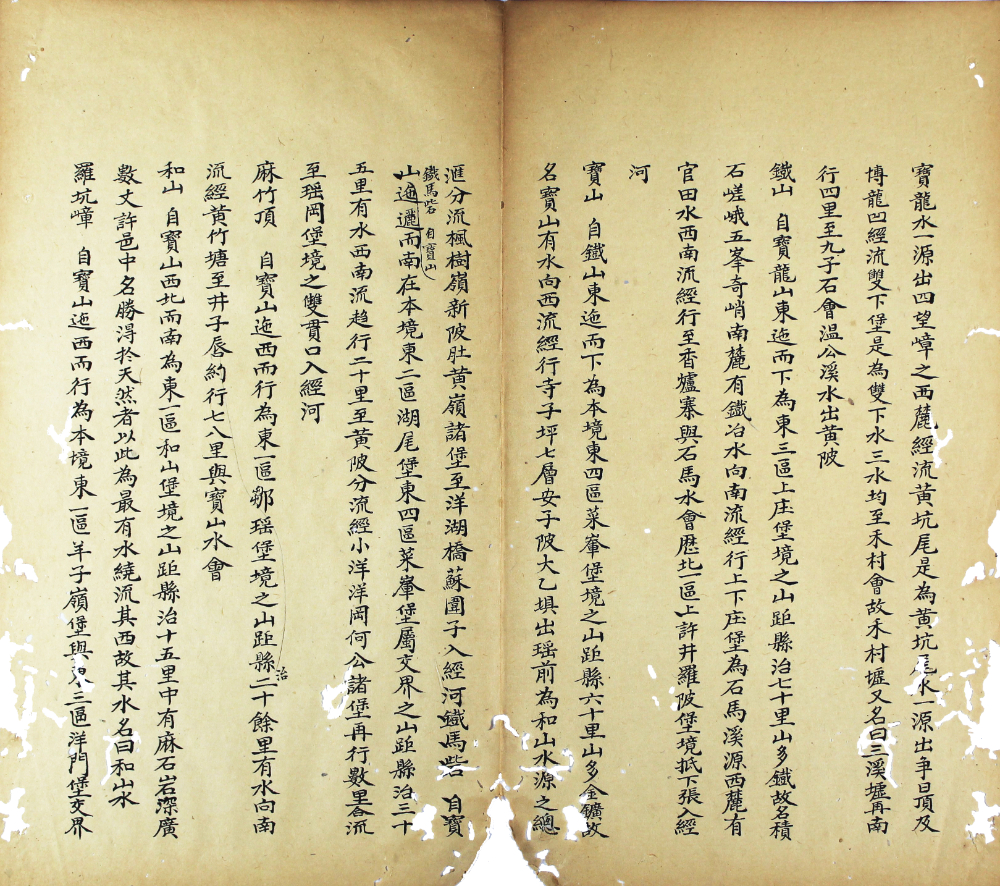 寶龍水一源出四望嶂之西麓經流黃坑尾是為黃坑尾水一源出爭日頂及
博龍凹經流雙下堡是為雙下水三水均至禾村會故禾村墟又名曰三溪墟再南
行四里至九子石會温公溪水出黃陂
鐵山　自寶龍山東迤而下為東三區上庄堡境之山距縣治七十里山多鐵故名積
石嵯峨五峯奇峭南麓有鐵冶水向南流經行上下庄堡為石馬溪源西麓有
官田水西南流經行至香爐寨與石馬水會歷北一區上許井羅陂堡境抵下張入經
河
寶山　自鐵山東迤而下為本境東四區菜輋堡境之山距縣六十里山多金鑛故
名寶山有水向西流經行寺子坪七層安子陂大乙垻出瑶前為和山水源之總
滙分流楓樹嶺新陂肚黃嶺諸堡至洋湖橋蘇圍子入經河鐵馬砦　自寶
鐵馬砦　自寶山
山迤邐而南在本境東二區湖尾堡東四區菜輋堡屬交界之山距縣治三十
五里有水西南流趋行二十里至黃陂分流經小洋洋岡何公諸堡再行數里各流
至瑶岡堡境之雙貫口入經河
麻竹頂　自寶山迤西而行為東一區鄒瑶堡境之山距縣治二十餘里有水向南
流經黃竹塘至井子唇約行七八里與寶山水會
和山　自寶山西北而南為東一區和山堡境之山距縣治十五里中有麻石岩深廣
數丈許邑中名勝得於天然者以此為最有水繞流其西故其水名曰和山水
羅坑嶂　自寶山迤西而行為本境東一區羊子嶺堡與三區洋門堡交界